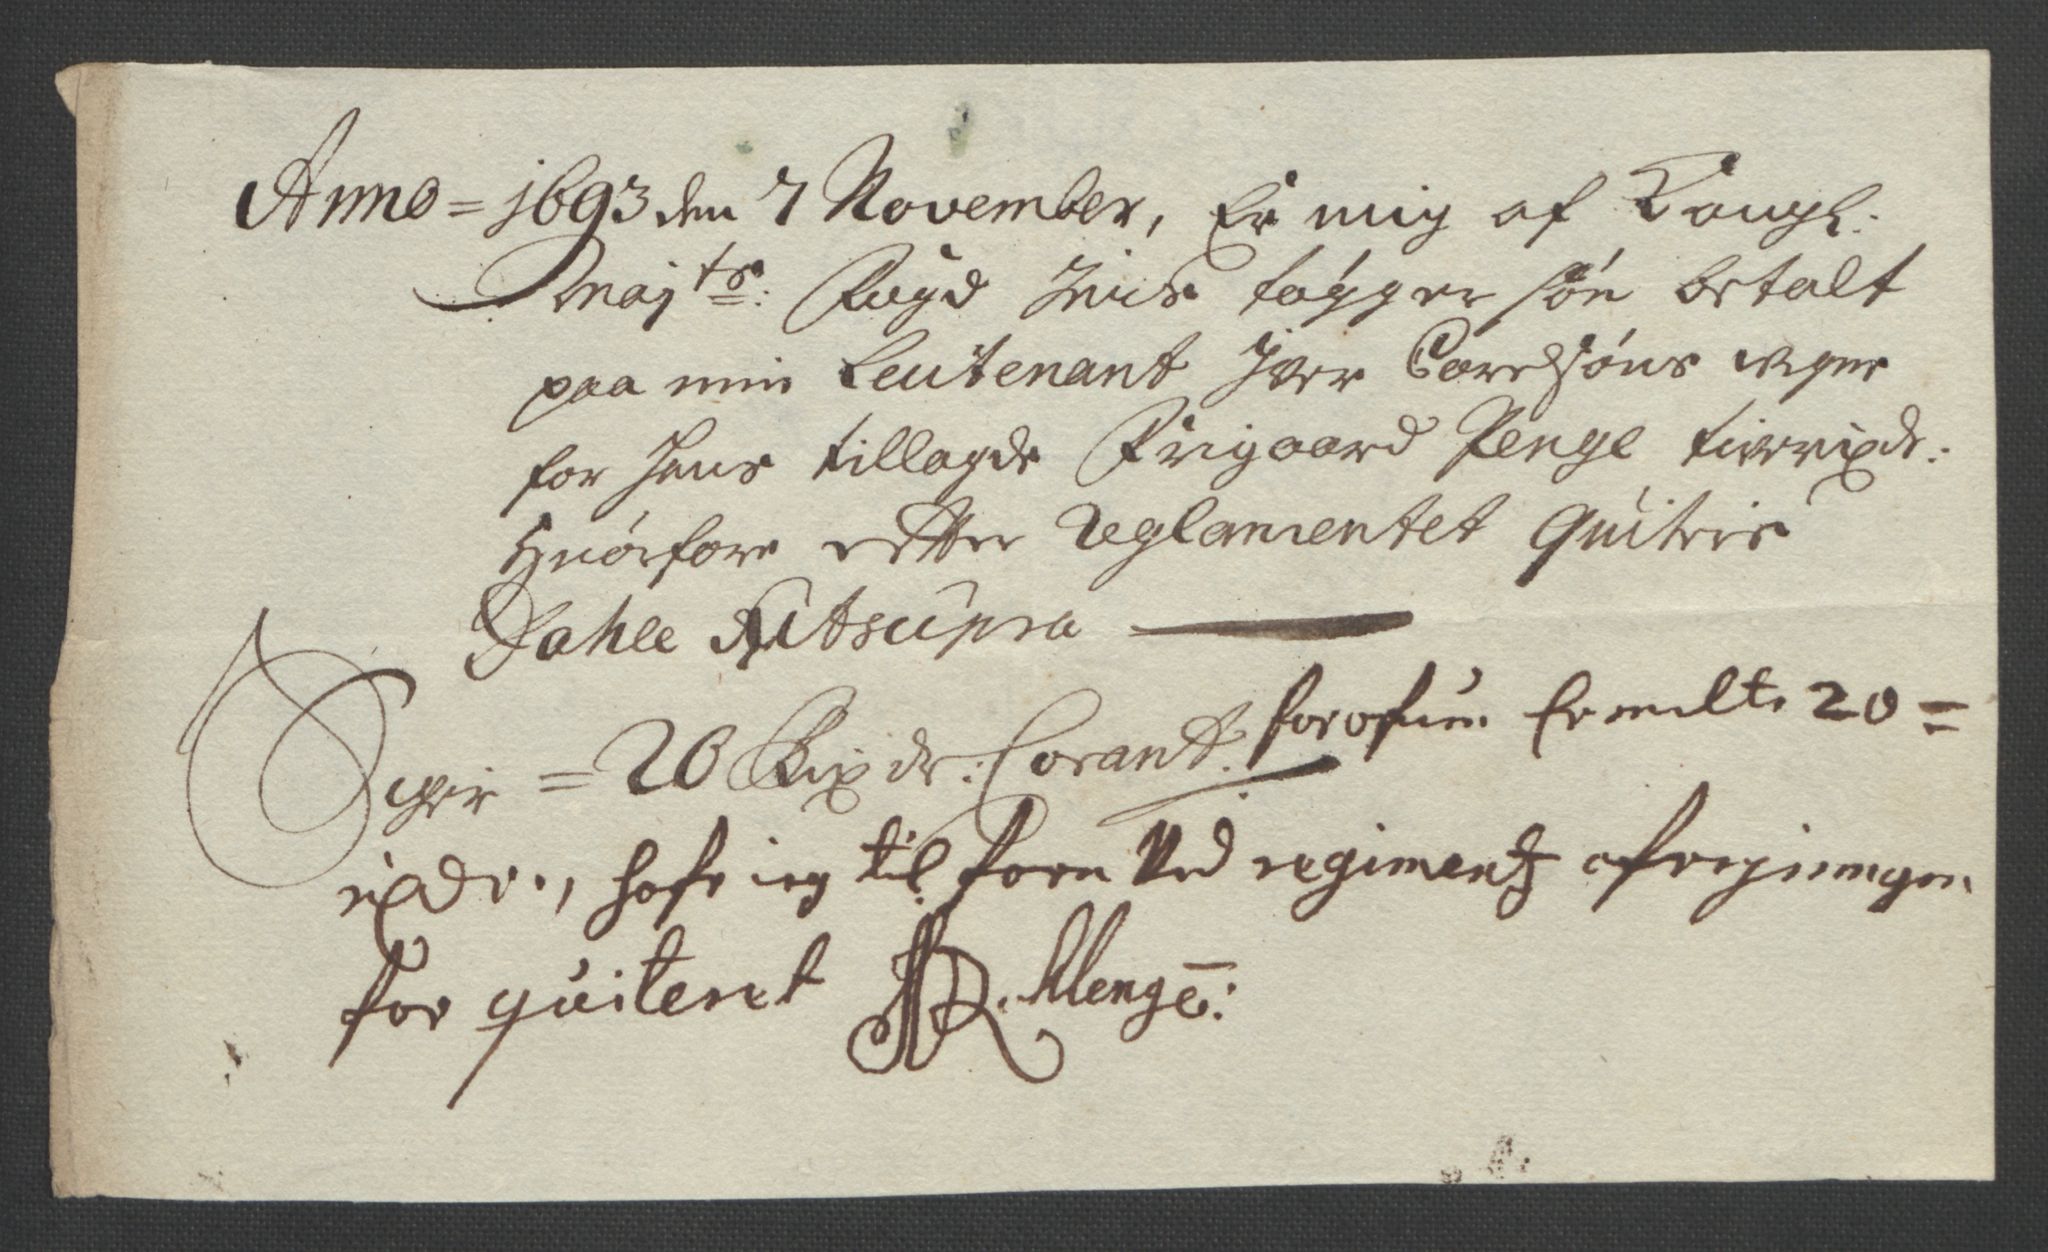 Anno = 1693 den 7 November, Er mig af Kongl:
Maijts: Fogd Jens tøggersøn betalt
paa min Leutenant Iver Corelsøns vegne
for hans tillagde Frigaard Penge tive rixdr:
Huorfore efter Reglamentet Quiteris
Dahle Ut supra
Siger = 20 Rixdr: Corant. forofuen Ermelte 20 =
rixdr., hafr ieg til forn Ved regimentz afregningen
for quiteret HR. Menge: